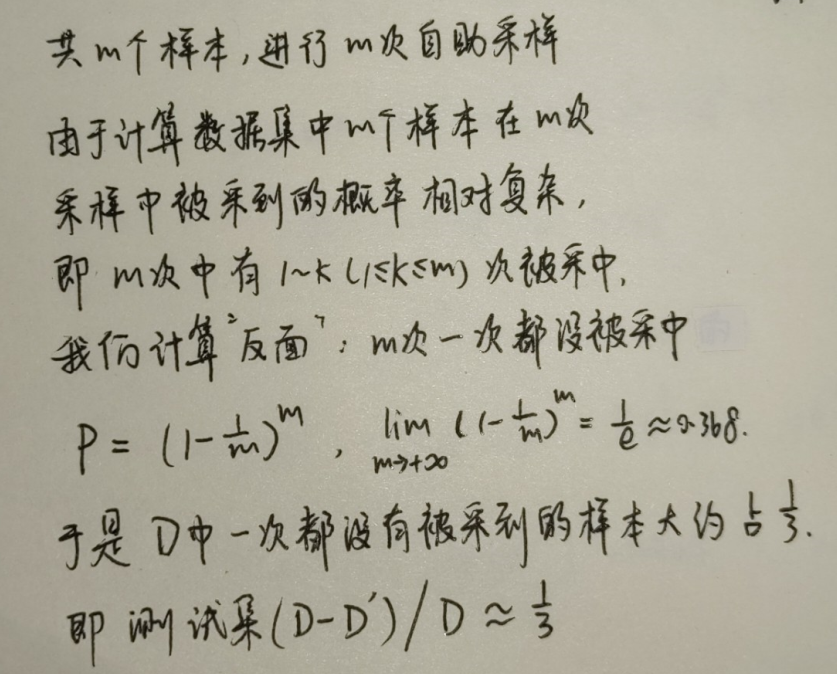 共m个样本,进行m次自助采样
由于计算数据集中m个样本在m次
采样中被采到的概率相对复杂,
即m次中有1~k(1≤k≤m)次被采中,
我们计算"反面":m次一次都没被采中
P = (1-1/m)^m , lim m→+∞ (1-1/m)^m = 1/e ≈ 0.368.
于是D中一次都没有被采到的样本大约占1/3.
即测试集(D-D')/D ≈ 1/3